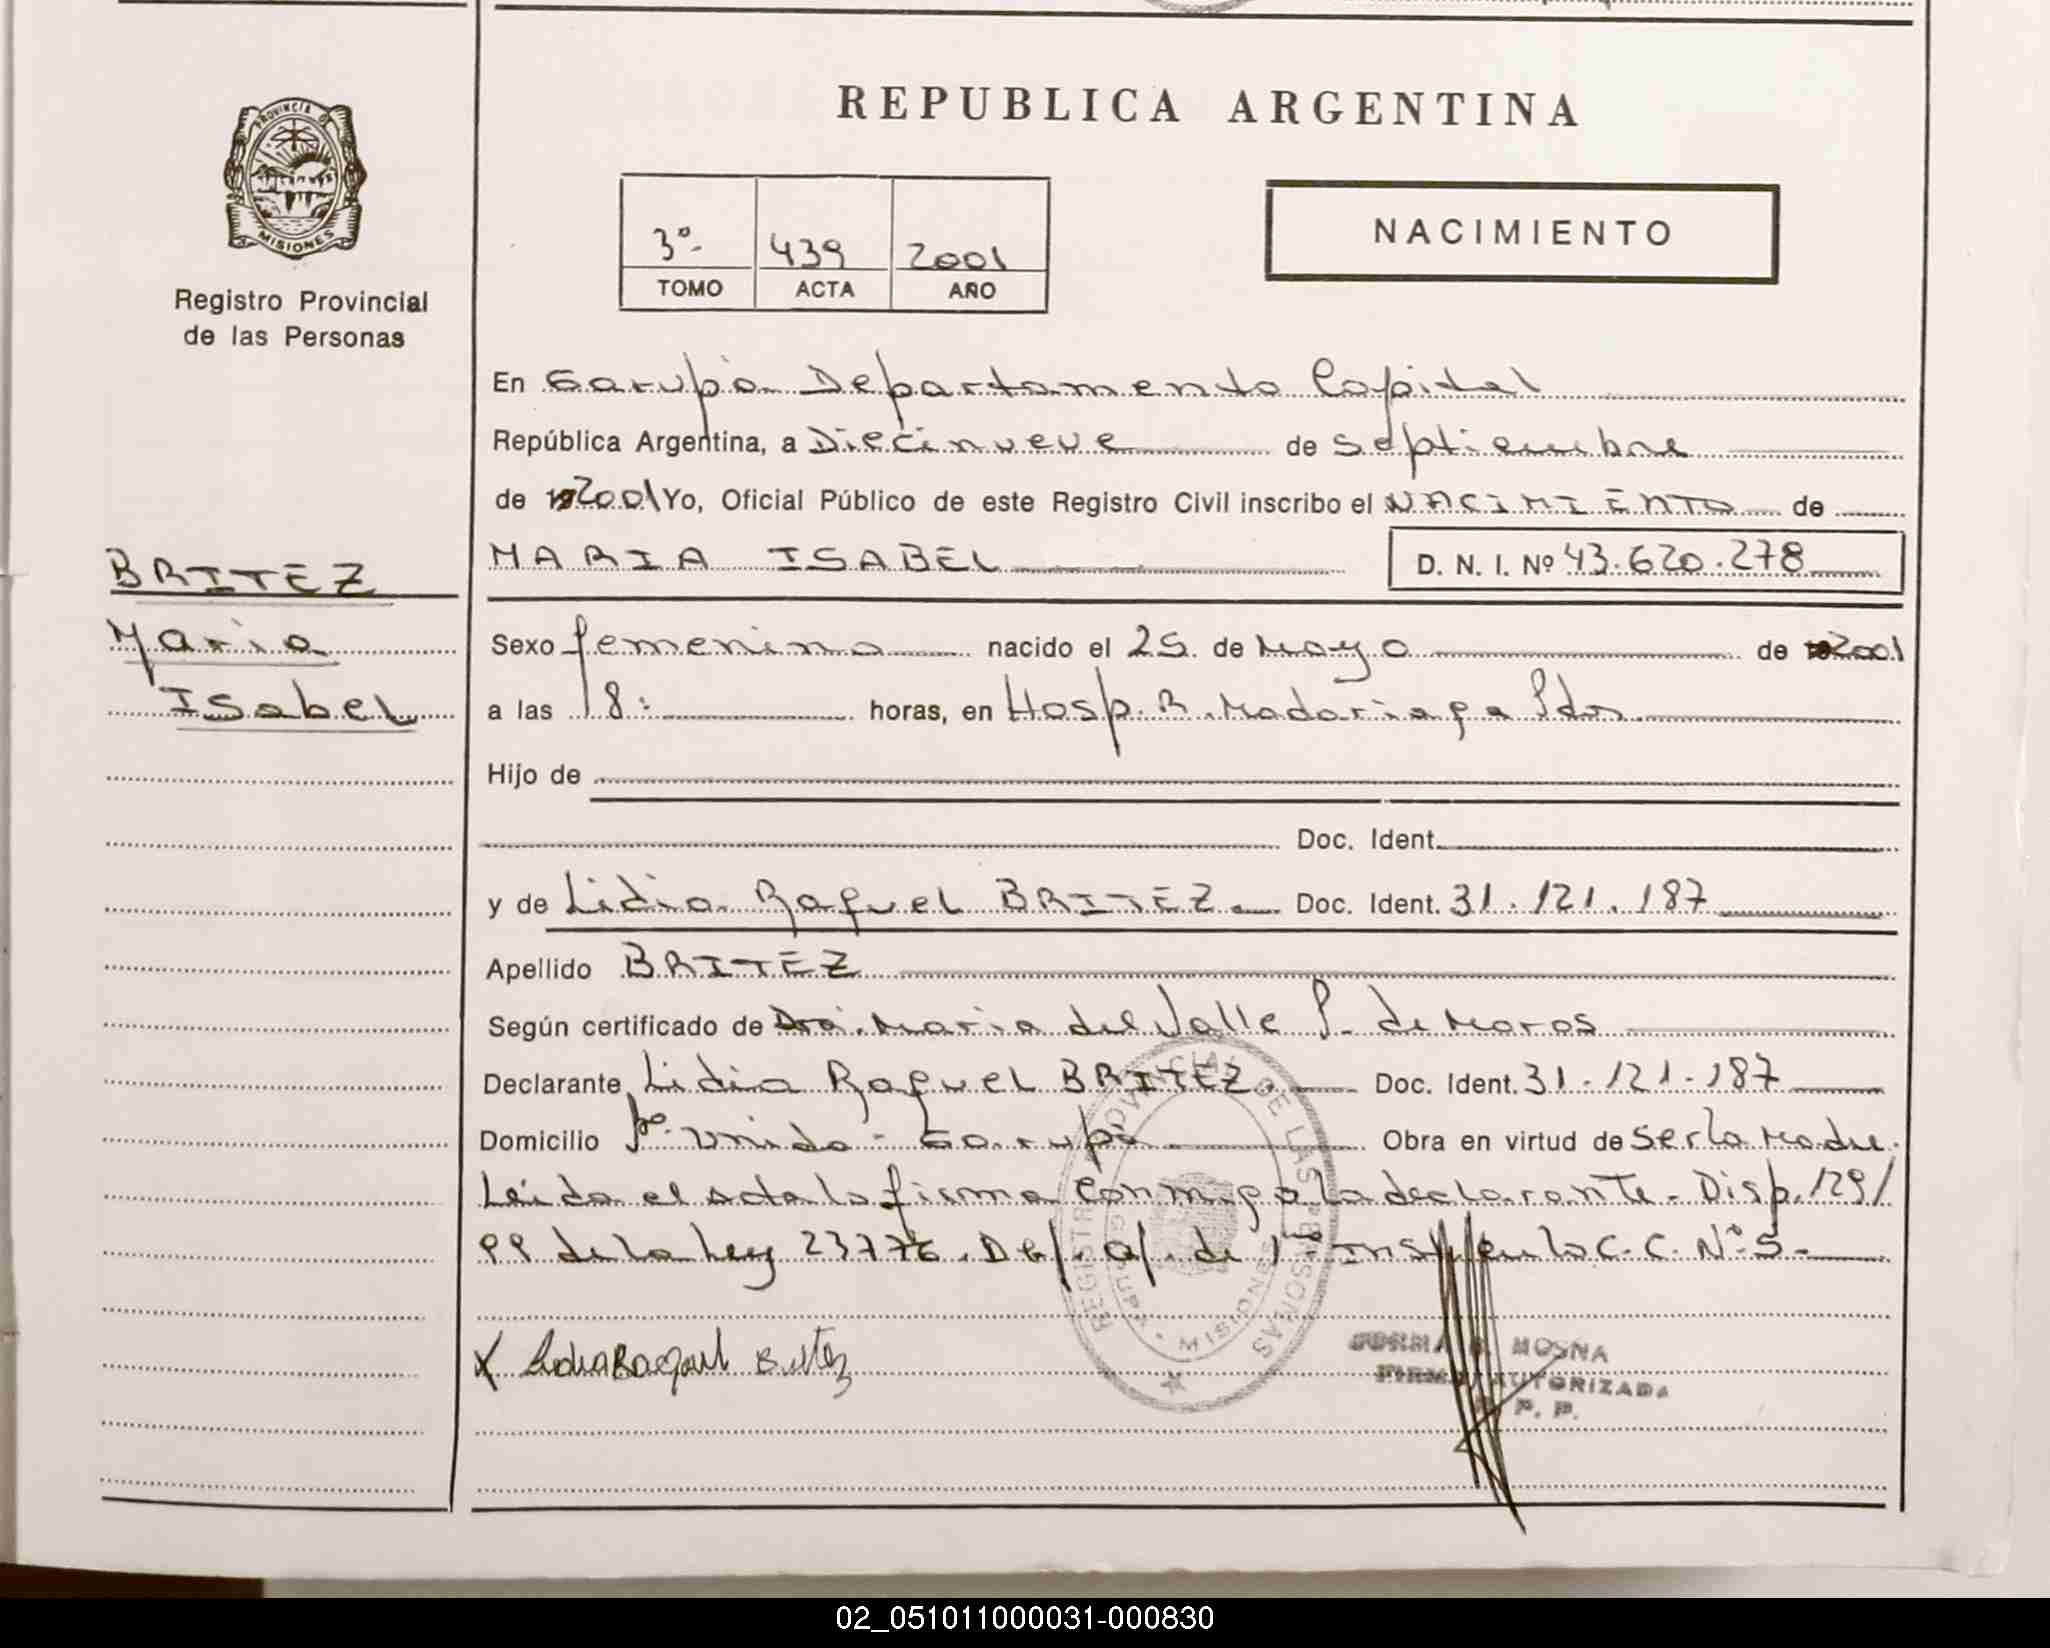 REPUBLICA ARGENTINA
PROVINCIA DE
MISIONES
Registro Provincial
de las Personas
3º- 439 2001
TOMO ACTA AÑO
NACIMIENTO
En Garupá Departamento Capital
República Argentina, a Diecinueve de septiembre
de 192001 Yo, Oficial Público de este Registro Civil inscribo el NACIMIENTO de
BRITEZ
MARIA ISABEL D. N. I. Nº 43.620.278
Maria
Sexo femenino nacido el 25 de Mayo de 192001
Isabel
a las 18: horas, en Hosp. R. Madariaga Pdas.
Hijo de
Doc. Ident.
y de Lidia Raquel BRITEZ. Doc. Ident. 31.121.187
Apellido BRITEZ
Según certificado de Dra. Maria del Valle P. de Moros
Declarante Lidia Raquel BRITEZ. Doc. Ident. 31-121-187
Domicilio Bº Unido - Garupá Obra en virtud de Ser la Madre.
Leida el acta la firma conmigo la declarante. Disp. 129/
99 de la Ley 23776. Def. of. de 1º Inst C. C. Nº 5-
REGISTRO PROVINCIAL DE LAS PERSONAS
MISIONES
X Lidia Raquel Britez
NORMA MOSNA
FIRMA AUTORIZADA
R. P. P.
02_051011000031-000830